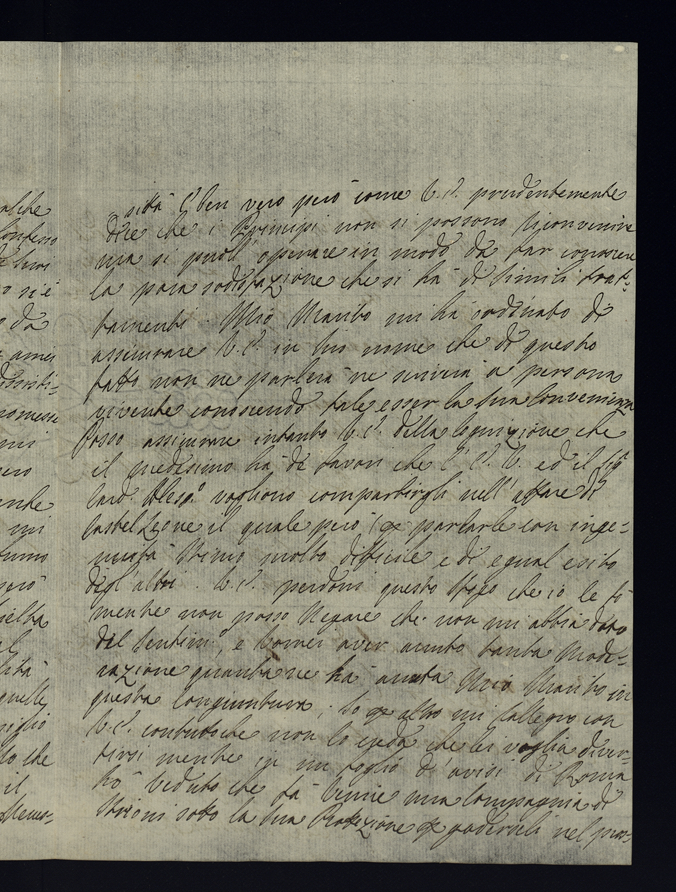 sità. È ben vero però come V.E. prudentemente
dice che i Principi non si possono riconvenire
ma si puol operare in modo da far conoscere
la poca sodisfazione che si hà di simili trat-
tamenti. Mio Marito mi hà ordinato di
assicurare V.E. in suo nome che di questo
fatto non ne parlerà ne scriverà a persona
vivente conoscendo tale esser la sua convenienza
Posso assicurare intanto V.E. della cognizione che
il medesimo hà de favori che l'E.V. ed il Sig.
Card. vogliono compartirgli nell'affare di
Castel Leone il quale però per parlarle con inge-
nuità stimo molto difficile e di egual esito
degl'altri. V.E. perdoni questo sfogo che io le fò
mentre non posso negare che non mi abbia dato
del sentim.to, e vorrei aver avuto tanta mode-
razione quanta ne hà avuta Mio Marito in
questa congiuntura; Io per altro mi rallegro con
V.E. contuttoche non lo creda che lei voglia diver-
tirsi mentre in un foglio d'avisi di Roma
hò veduto che fà venire una Compagnia di
Istrioni sotto la sua Protezione per goderseli nel pros-